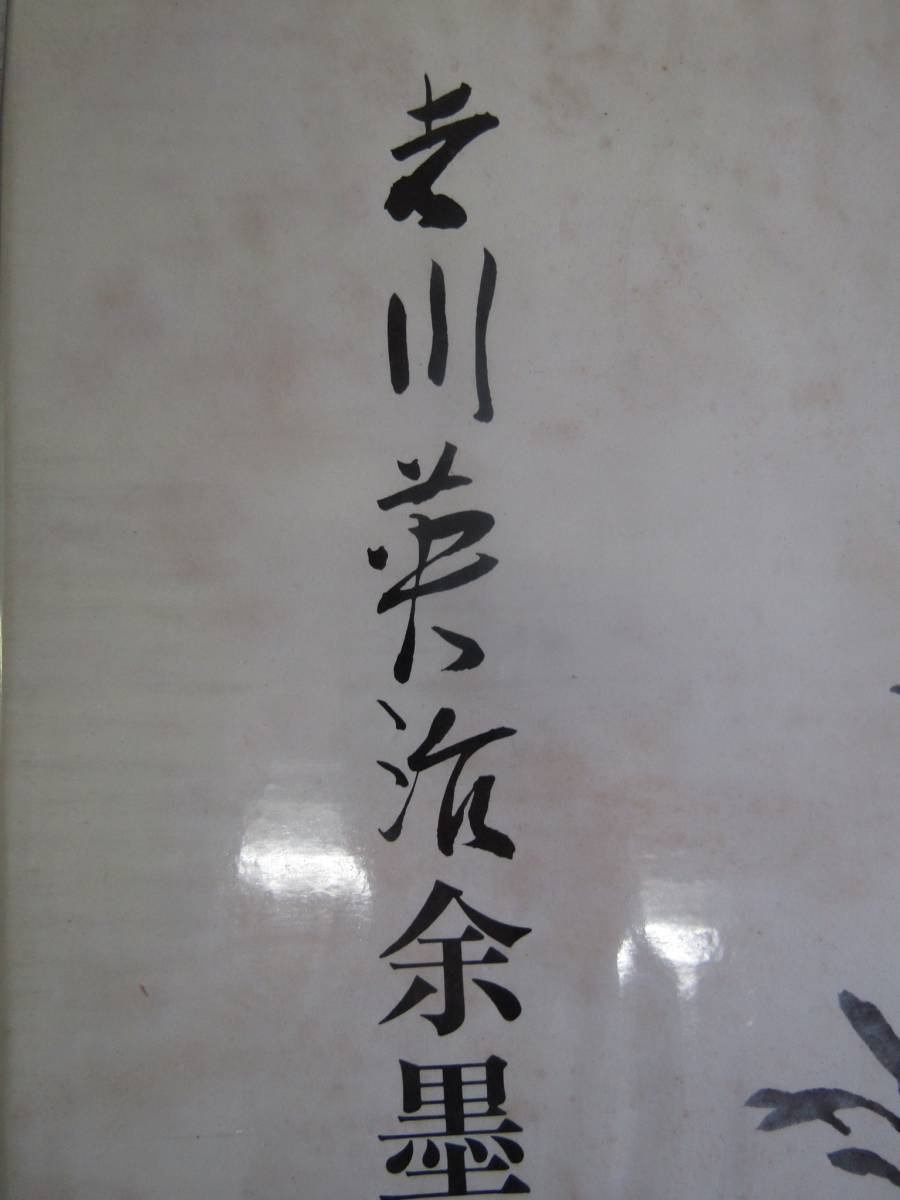 吉川英治余墨